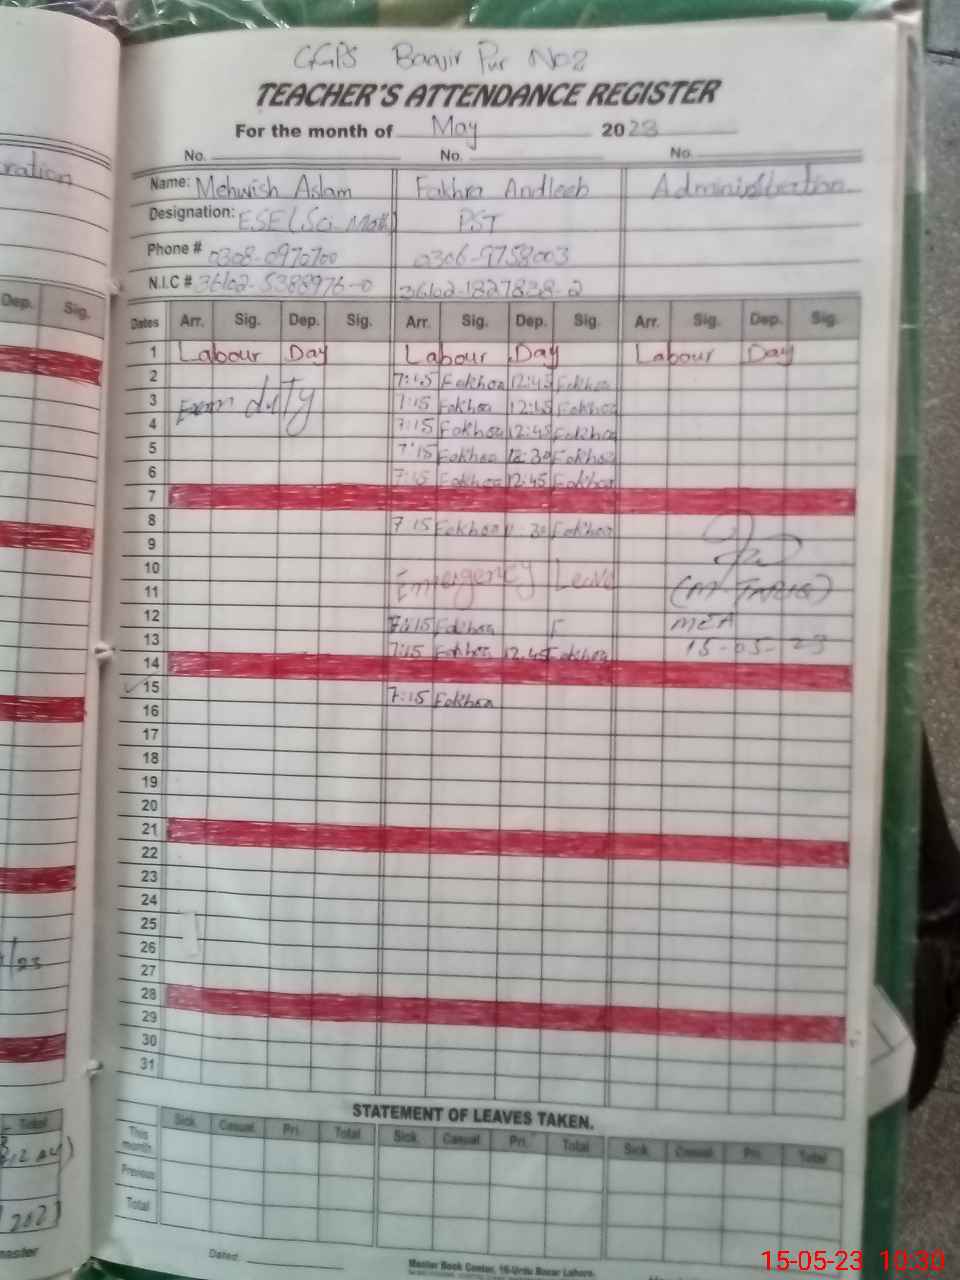 GGPS Baajir Pur No2
TEACHER'S ATTENDANCE REGISTER
For the month of May 2023
No. No. No.
Name: Mehwish Aslam Fakhra Andleeb Administration
Designation: ESE (Sci Math) PST
Phone # 0308-0970700 0306-9758003
N.I.C # 36102-5388976-0 36102-1827838-2
Dep. Sig. Dates Arr. Sig. Dep. Sig. Arr. Sig. Dep. Sig. Arr. Sig. Dep. Sig.
1 Labour Day Labour Day Labour Day
2 7:15 Fakhra 12:45 Fakhra
3 Exam duty 7:15 Fakhra 12:45 Fakhra
4 7:15 Fakhra 12:45 Fakhra
5 7:15 Fakhra 12:30 Fakhra
6 7:15 Fakhra 12:45 Fakhra
7
8 7:15 Fakhra 30 Fakhra
9
10 Emergency Leave
11 (M. TARIQ)
12 7:15 Fakhra F MEA
13 7:15 Fakhra 12:45 Fakhra 15-05-23
14
15 7:15 Fakhra
16
17
18
19
20
21
22
23
24
25
26
27
28
29
30
31
STATEMENT OF LEAVES TAKEN.
Sick Casual Pri. Total Sick Casual Pri. Total Sick Casual Pri. Total
This month
Previous
Total
Dated:
Master Book Center, 16-Urdu Bazar Lahore.
15-05-23 10:30